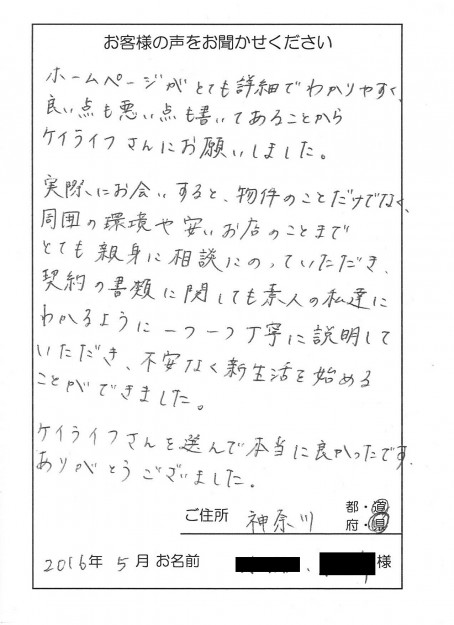 お客様の声をお聞かせください
ホームページがとても詳細でわかりやすく、
良い点も悪い点も書いてあることから
ケイライフさんにお願いしました。
実際にお会いすると、物件のことだけでなく、
周囲の環境や安いお店のことまで
とても親身に相談にのっていただき、
契約の書類に関しても素人の私達に
わかるように一つ一つ丁寧に説明して
いただき、不安なく新生活を始める
ことができました。
ケイライフさんを選んで本当に良かったです。
ありがとうございました。
ご住所 神奈川 都・道
府・県
2016年 5月 お名前 、 様